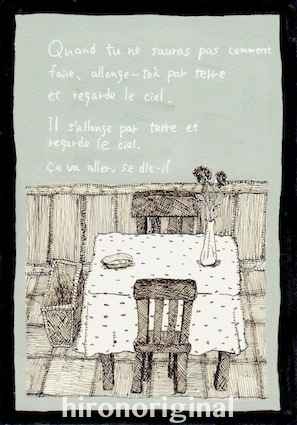 Quand tu ne sauras pas comment
faire, allonge-toi par terre
et regarde le ciel.
Il s'allonge par terre et
regarde le ciel.
Ça va aller, se dit-il
hironoriginal